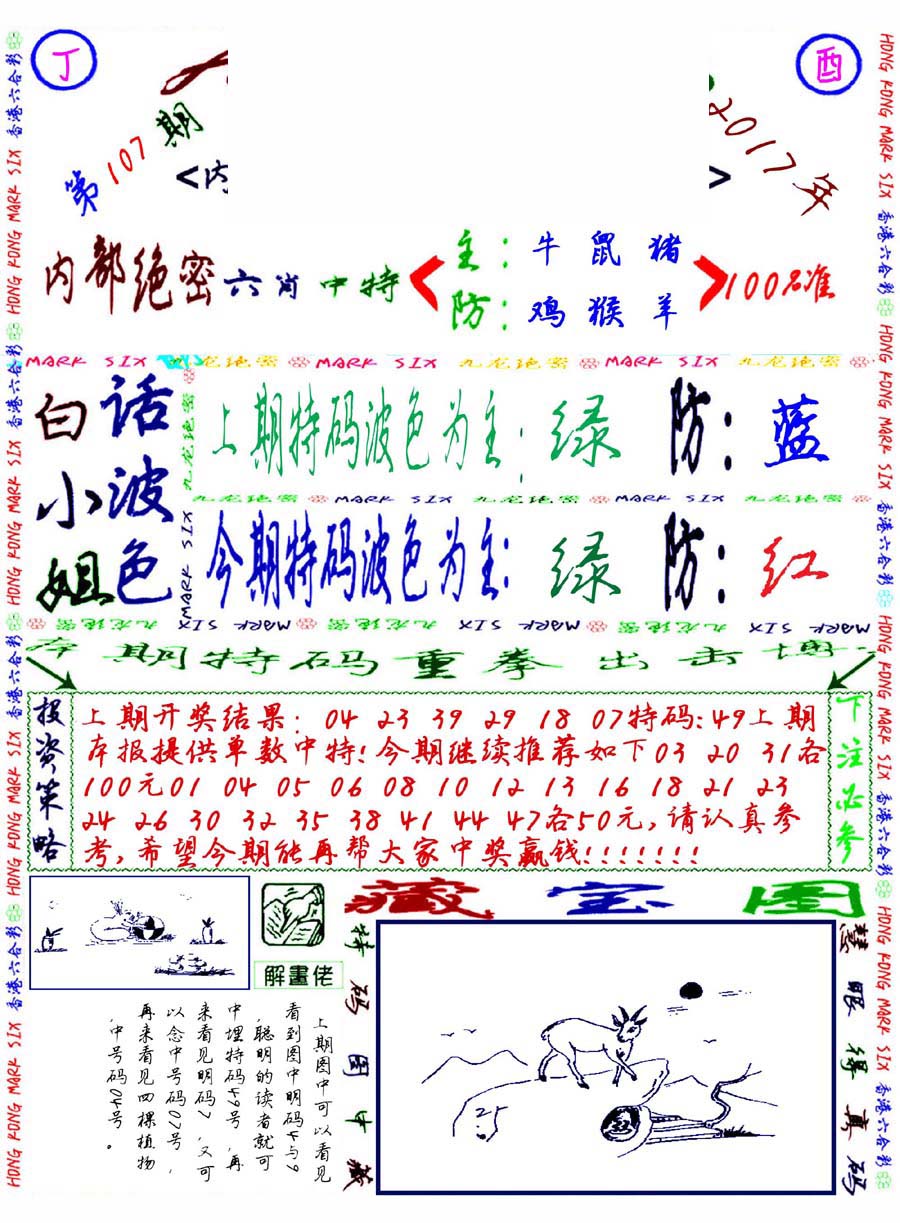 丁
酉
第107期
2017年
<内
>
内部绝密六肖中特
主：牛 鼠 猪
防：鸡 猴 羊
100%准
MARK SIX 九龙绝密 MARK SIX 九龙绝密 MARK SIX 九龙绝密
白话
小波
姐色
上期特码波色为主：绿 防：蓝
九龙绝密 MARK SIX 九龙绝密 MARK SIX 九龙绝密
今期特码波色为主：绿 防：红
九龙绝密 MARK SIX 九龙绝密 MARK SIX 九龙绝密 MARK SIX
本期特码重拳出击博
投资策略
上期开奖结果：04 23 39 29 18 07特码:49上期
本报提供单数中特!今期继续推荐如下03 20 31各
100元01 04 05 06 08 10 12 13 16 18 21 23
24 26 30 32 35 38 41 44 47各50元,请认真参
考,希望今期能再帮大家中奖赢钱!!!!!!!
下注必参
藏宝图
解畫佬
特码图中藏
慧眼得真码
上期图中可以看见
看到图中明码4与9
,聪明的读者就可
中埋特码49号,再
来看见明码7,又可
以念中号码07号,
再来看见四棵植物
,中号码04号。
HONG KONG MARK SIX 香港六合彩
HONG KONG MARK SIX 香港六合彩